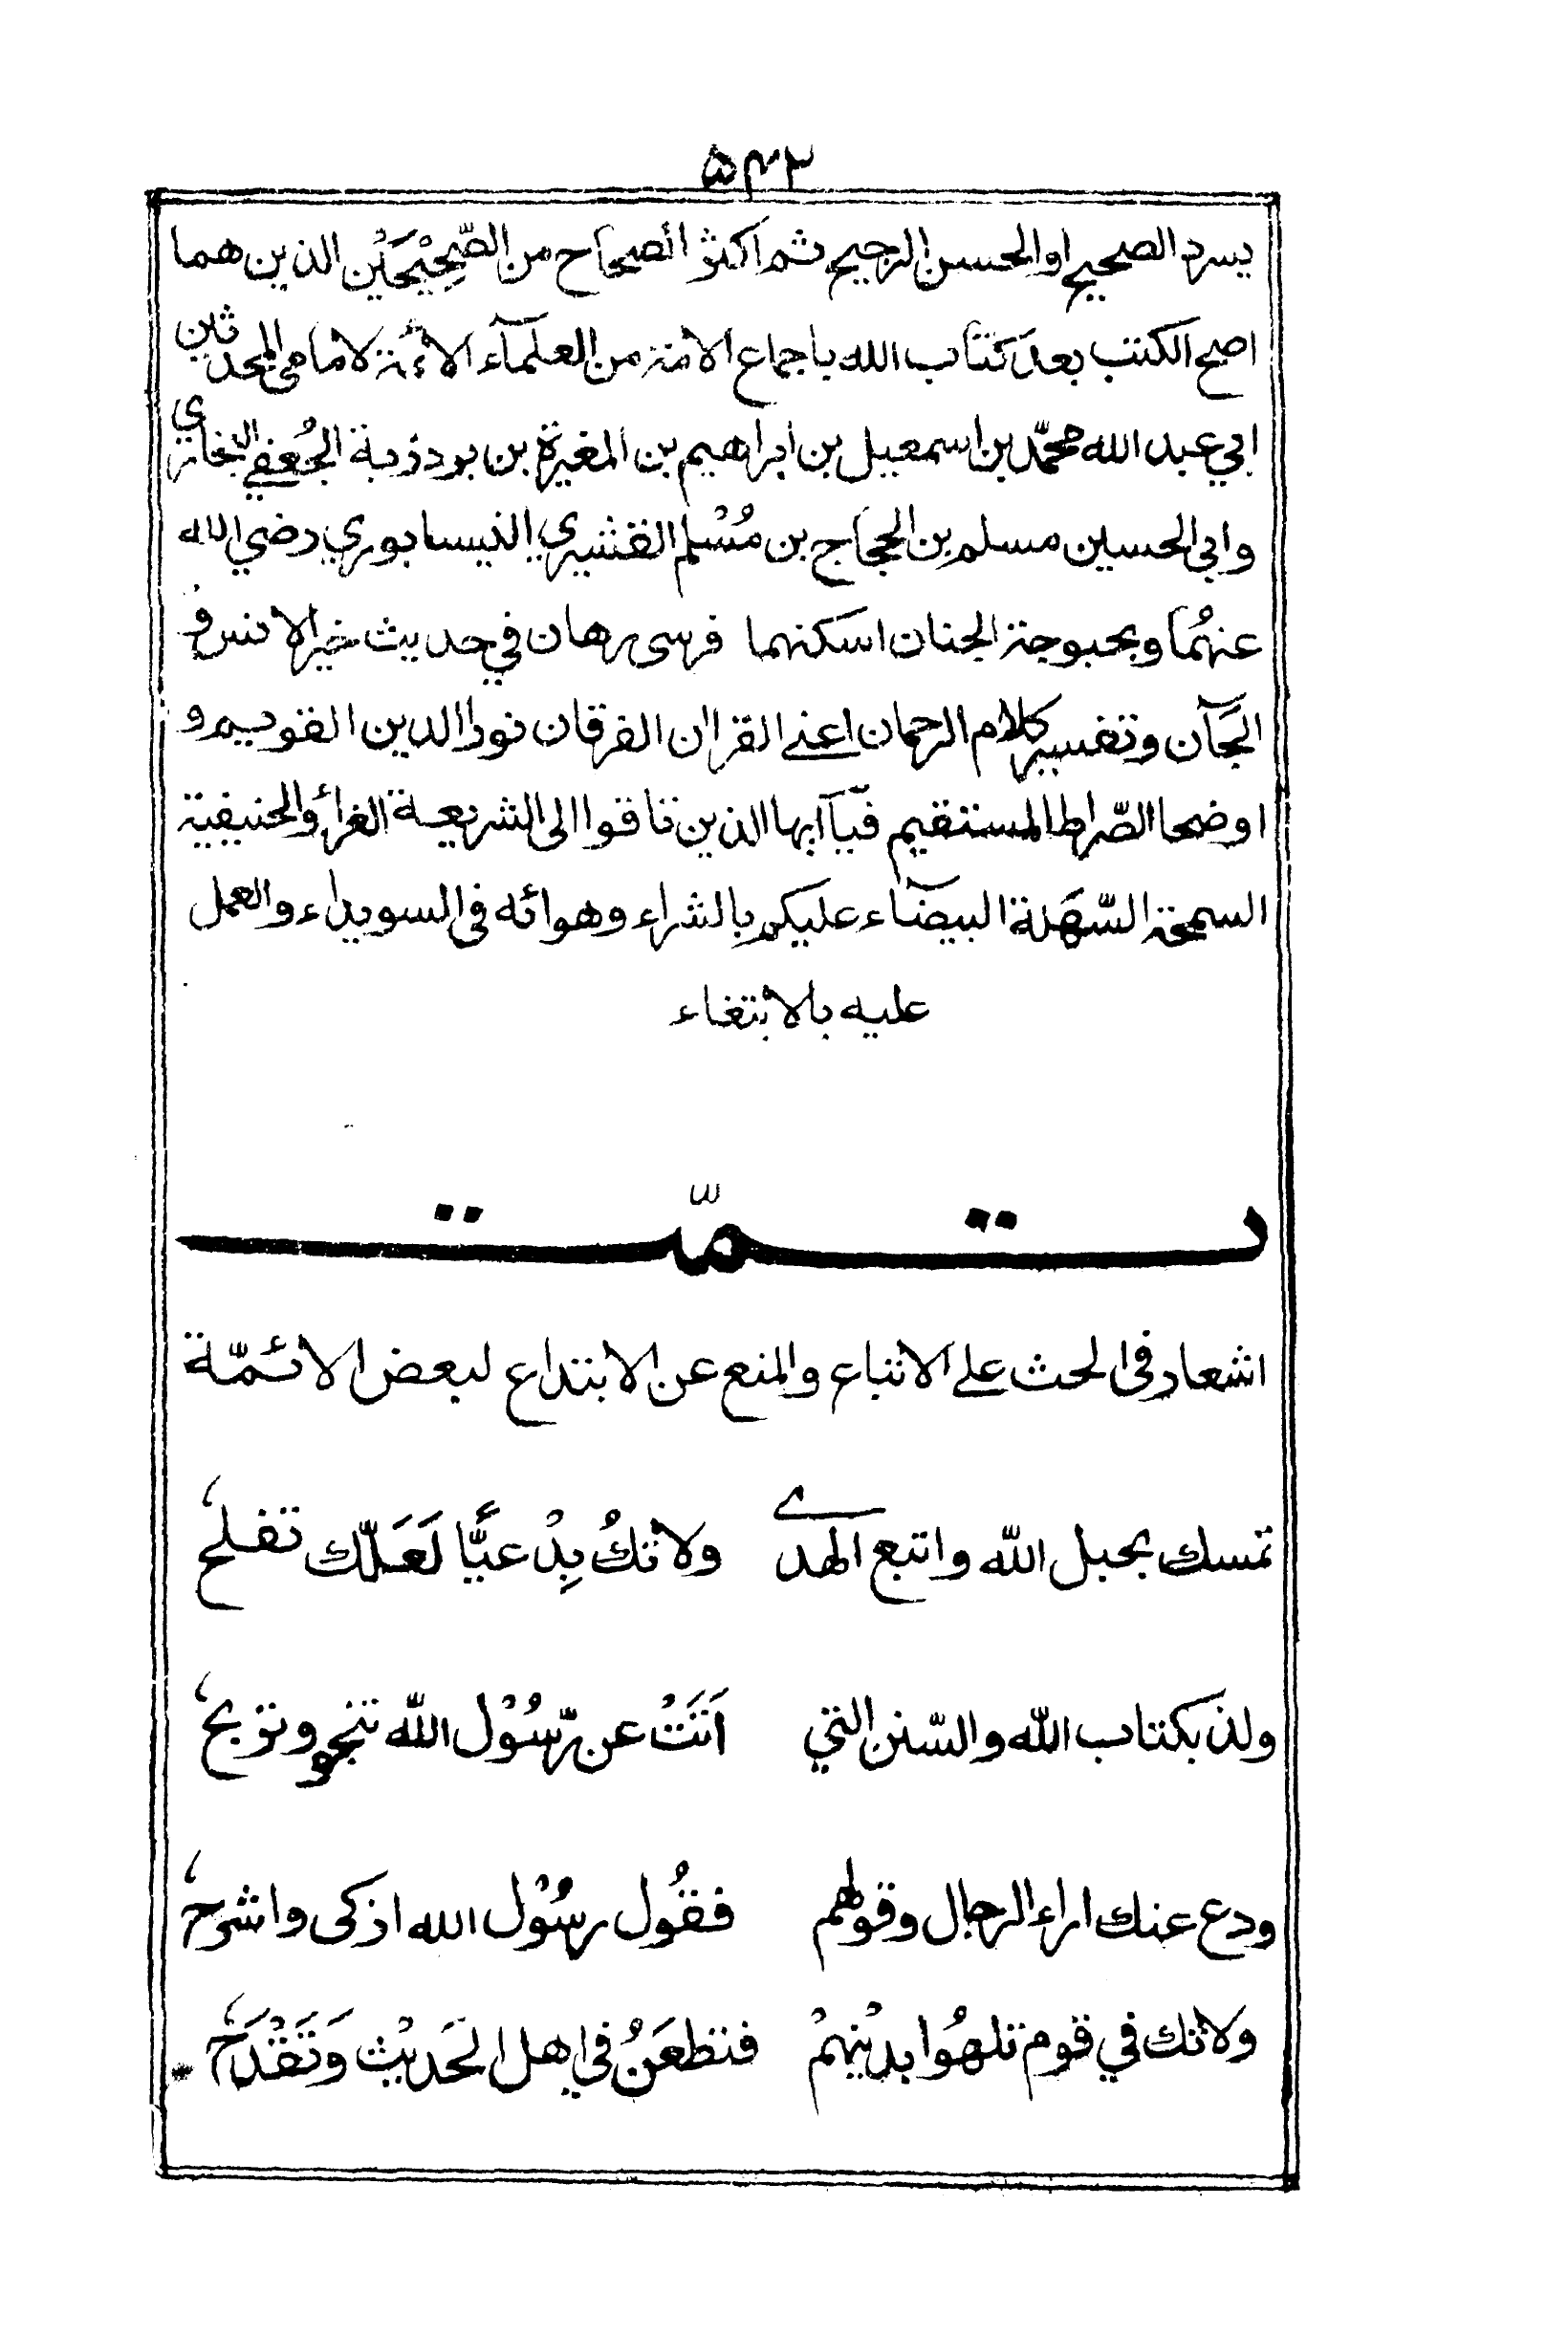 ۵۴۲
يسرد الصحيح او الحسن الرجيح ثم اكثر الصحاح من الصّحِيْحَيْن الذين هما
اصح الكتب بعد كتاب الله باجماع الامة من العلمآء الأئمة لامامى المحدثين
ابي عبد الله محمّد بن اسمعيل بن ابراهيم بن المغيرة بن بردزبة الجُعفي البخاري
وابى الحسين مسلم بن الحجاج بن مُسْلم القشيري النيسابوري رضي الله
عنهُما وبحبوحة الجنان اسكنهما فرسى رهان في حديث خير الانس و
الجَآن وتفسير كلام الرحمان اعنى القران الفرقان نورا الدين القويم و
اوضحا الصّراط المستقيم فيآ ايها الذين تاقوا الى الشريعة الغراء والحنيفية
السمحة السّهَلة البيضآء عليكم بالشراء وهوائه فى السويداء والعمل
عليه بالابتغاء
تمّت
اشعار فى الحث على الاتباع والمنع عن الابتداع لبعض الائمّة
تمسك بحبل اللّه واتبع الهدى ولا تكُ بِدْعيًّا لَعَلّك تفلح
ولذ بكتاب اللّه والسّنن التي اَتَتْ عن رّسُوْل اللّه تنجو وتربح
ودع عنك اراء الرجال وقولهم فقُول رسُوْل الله ازكى واشرح
ولا تك في قوم تلهُوا بدْينهمْ فتطعَنُ فى اهل الحَديْث وَتَقْدَحُ